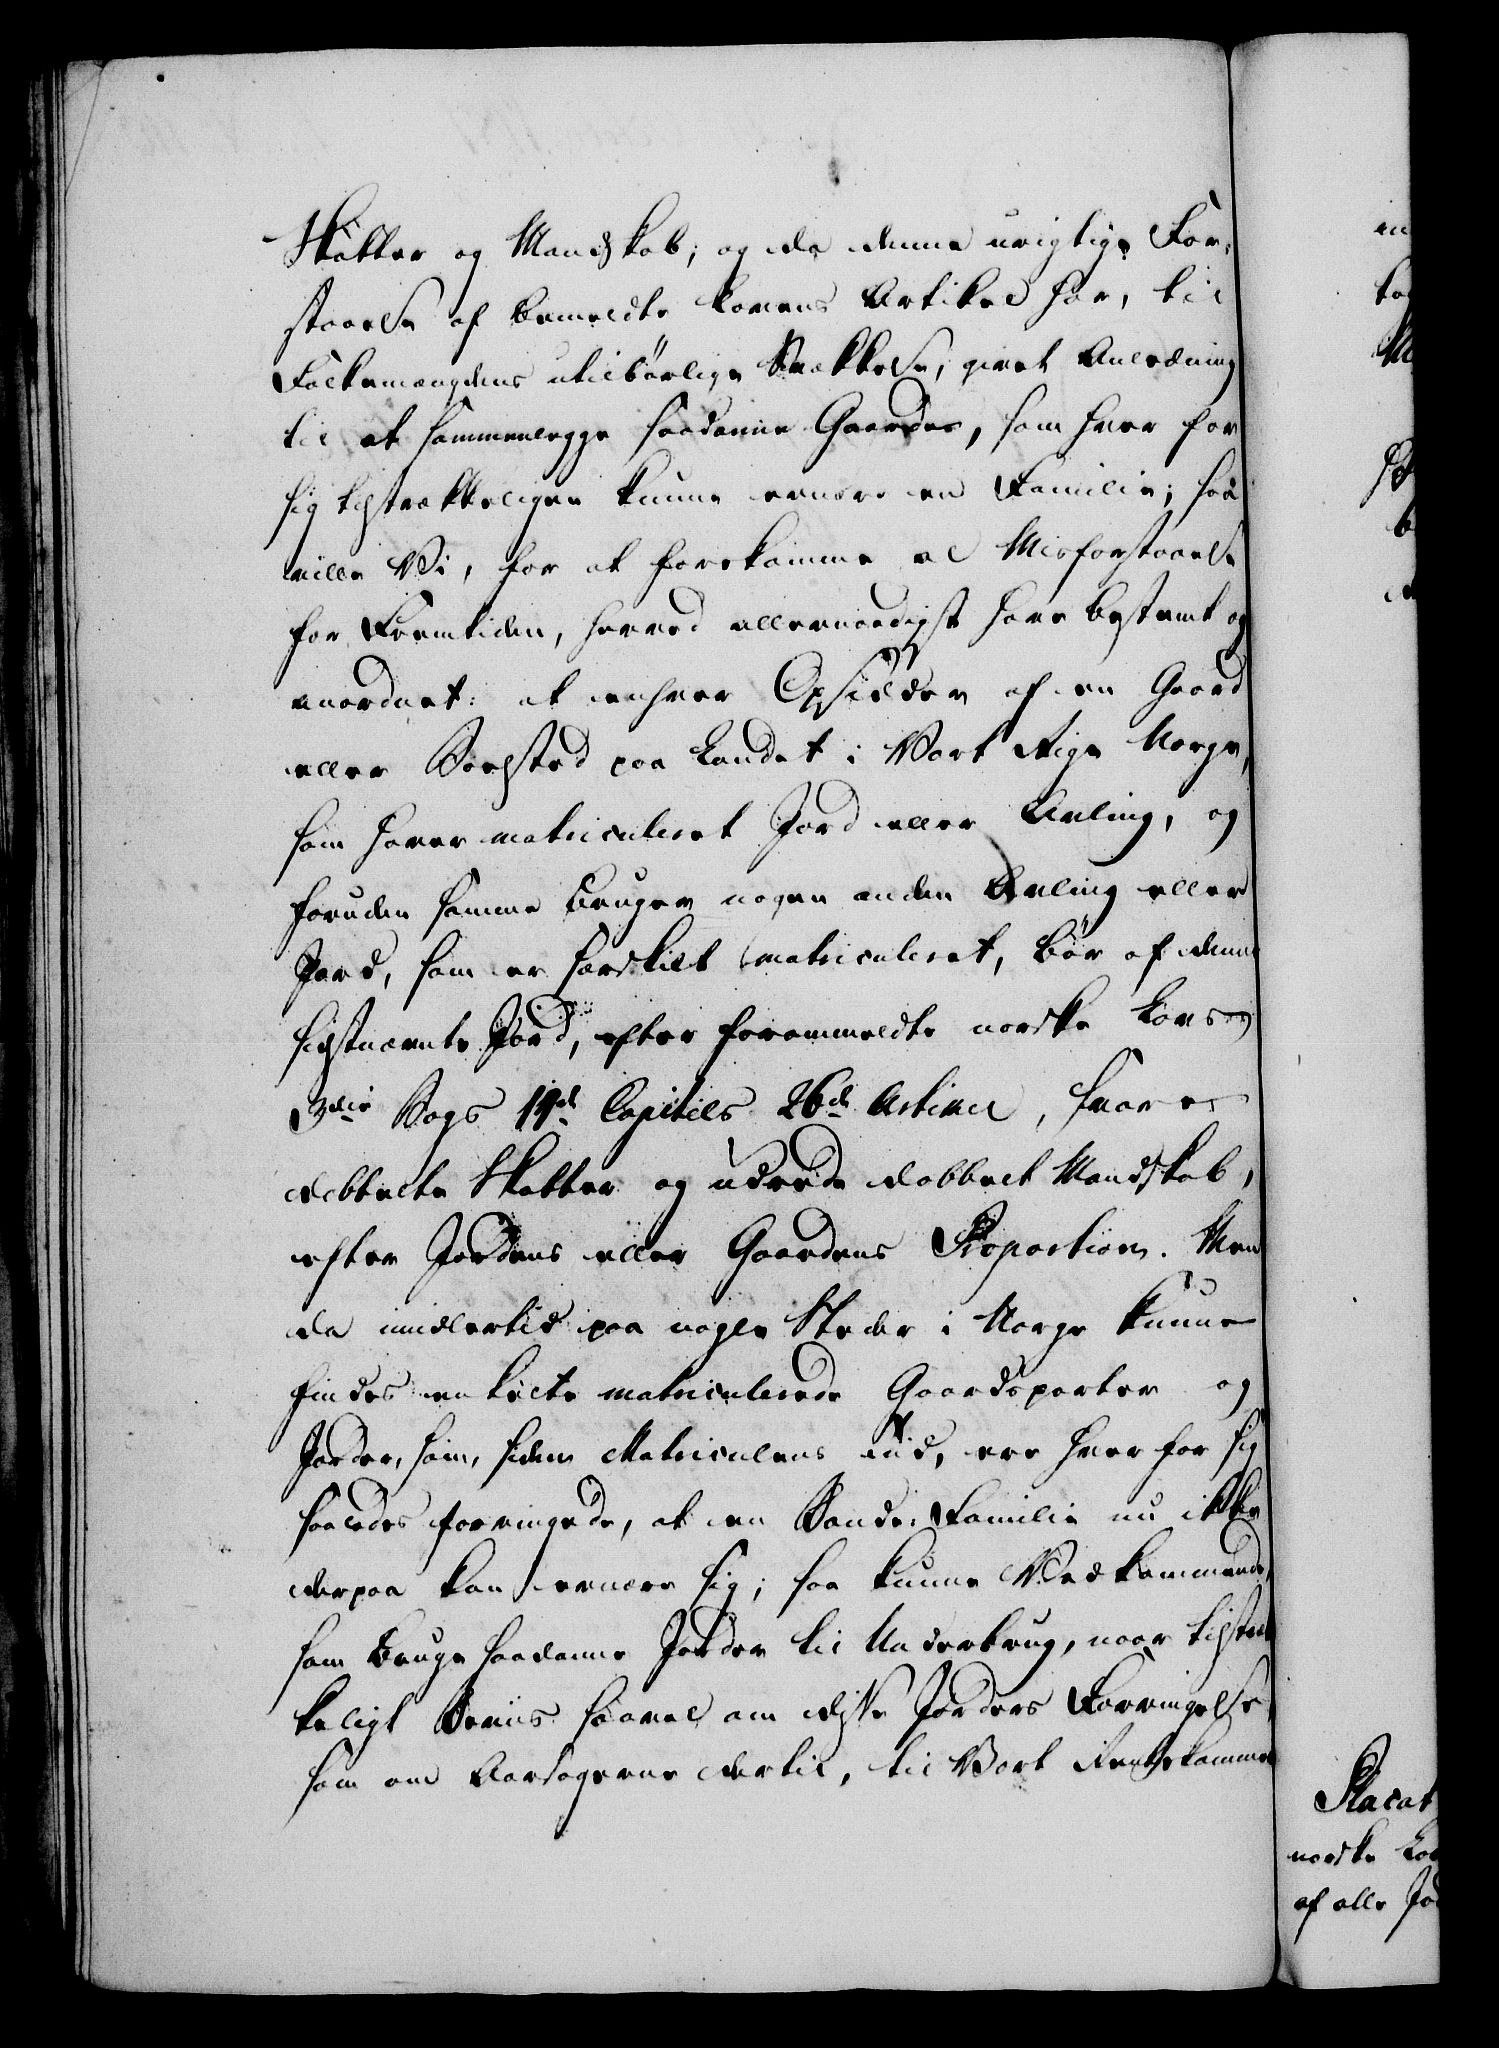 Skatter og Mandskab; og da denne urigtige For-
staaelse af bemeldte Lovens Artikel har, til
Folkemængdens utilbørlige Svækkelse, givet Anledning
til at sammenlegge saadanne Gaarder, som hver for
sig tilstrækkeligen kunne ernære en Familie; saa
ville Vi, for at forekomme al Misforstaaelse
for Fremtiden, herved allernaadigst have bestemt og
anordnet: at enhver Opsidder af en Gaard
eller Boested paa Landet i Vort Rige Norge,
som haver matriculeret Jord eller Avling, og
foruden samme bruger nogen anden Avling eller
Jord, som er særskilt matriculeret, bør af denne
sidstnævnte Jord, efter forommeldte norske Lovs
3die Bogs 14d Capitels 26d Artikel, svare
dobbelte Skatter og udrede dobbelt Mandskab,
efter Jordens eller Gaardens Proportion. Men
da imidlertid paa nogle Steder i Norge kunne
findes enkelte matriculerede Gaardsparter og
Jorder, som, siden Matriculens Tiid, ere hver for sig
saaledes forringede, at en Bonde-Familie nu ikke
derpaa kan ernære sig; saa kunne Vedkommende,
som bruge saadanne Jorder til Underbrug, naar tilstræk
keligt Beviis saavel om disse Jorders Forringelse,
som om Aarsagerne dertil, til Vort Rentekammer
Placat
norske Lov
af alle Jor